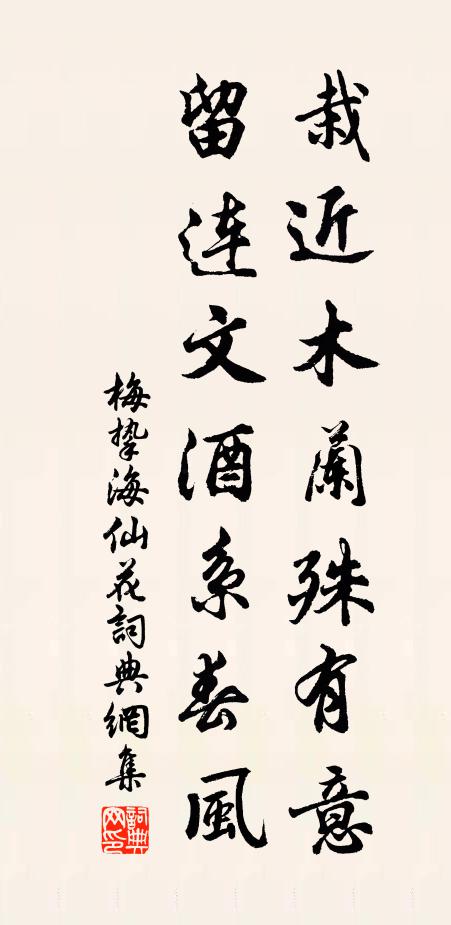 栽近木蘭殊有意
留連文酒系春風
梅摯海仙花詞典網集
詞典網印